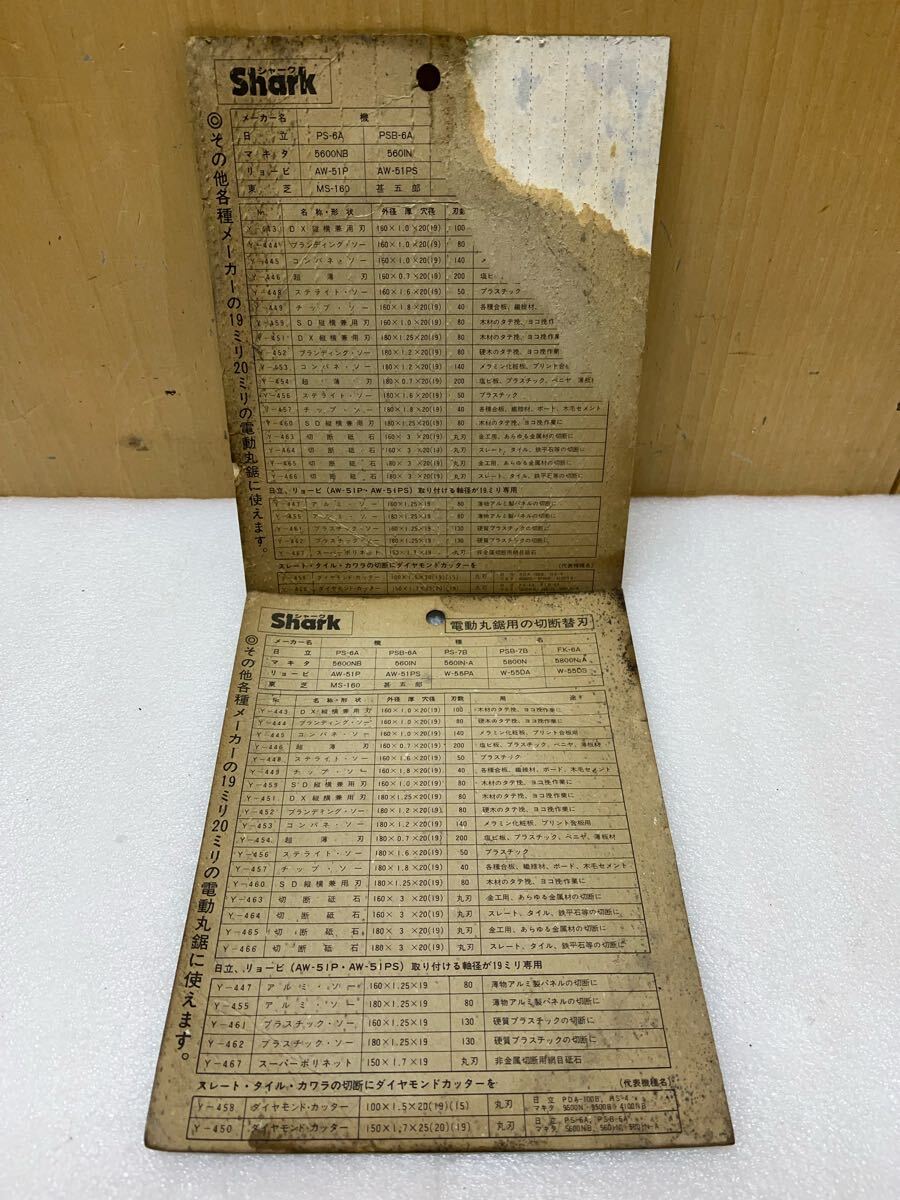 シャーク
Shark
メーカー名 機
日立 PS-6A PSB-6A
マキタ 5600NB 560IN
リョービ AW-51P AW-51PS
東芝 MS-160 甚五郎
◎その他各種メーカーの19ミリ20ミリの電動丸鋸に使えます。
№ 名称・形状 外径 厚 穴径 刃数
Y-443 DX縦横兼用刃 160×1.0×20(19) 100
Y-444 ブランディング・ソー 160×1.0×20(19) 80
Y-445 コンパネ・ソー 160×1.0×20(19) 140 メ
Y-446 超薄刃 160×0.7×20(19) 200 塩ビ
Y-448 ステライト・ソー 160×1.6×20(19) 50 プラスチック
Y-449 チップ・ソー 160×1.8×20(19) 40 各種合板、繊維材、
Y-459 SD縦横兼用刃 160×1.0×20(19) 80 木材のタテ挽、ヨコ挽作
Y-451 DX縦横兼用刃 180×1.25×20(19) 80 木材のタテ挽、ヨコ挽作業
Y-452 ブランディング・ソー 180×1.2×20(19) 80 硬木のタテ挽、ヨコ挽作業
Y-453 コンパネ・ソー 180×1.2×20(19) 140 メラミン化粧板、プリント合
Y-454 超薄刃 180×0.7×20(19) 200 塩ビ板、プラスチック、ベニヤ、薄板
Y-456 ステライト・ソー 180×1.6×20(19) 50 プラスチック
Y-457 チップ・ソー 180×1.8×20(19) 40 各種合板、繊維材、ボード、木毛セメント
Y-460 SD縦横兼用刃 180×1.25×20(19) 80 木材のタテ挽、ヨコ挽作業に
Y-463 切断砥石 160×3×20(19) 丸刃 金工用、あらゆる金属材の切断に
Y-464 切断砥石 160×3×20(19) 丸刃 スレート、タイル、鉄平石等の切断に
Y-465 切断砥石 180×3×20(19) 丸刃 金工用、あらゆる金属材の切断に
Y-466 切断砥石 180×3×20(19) 丸刃 スレート、タイル、鉄平石等の切断に
日立、リョービ(AW-51P・AW-51PS)取り付ける軸径が19ミリ専用
Y-447 アルミ・ソー 160×1.25×19 80 薄物アルミ製パネルの切断に
Y-455 アルミ・ソー 180×1.25×19 80 薄物アルミ製パネルの切断に
Y-461 プラスチック・ソー 160×1.25×19 130 硬質プラスチックの切断に
Y-462 プラスチック・ソー 180×1.25×19 130 硬質プラスチックの切断に
Y-467 スーパーポリネット 150×1.7×19 丸刃 非金属切断用網目砥石
スレート・タイル・カワラの切断にダイヤモンドカッターを (代表機種名)
Y-458 ダイヤモンド・カッター 100×1.5×20(19)(15) 丸刃
ダイヤモンド・カッター 150×1.7×25(20)(19) 丸刃
シャーク
Shark
電動丸鋸用の切断替刃
メーカー名 機種名
日立 PS-6A PSB-6A PS-7B PSB-7B FK-6A
マキタ 5600NB 560IN 560IN-A 5800N 5800N-A
リョービ AW-51P AW-51PS W-56PA W-55DA W-55DB
東芝 MS-160 甚五郎
◎その他各種メーカーの19ミリ20ミリの電動丸鋸に使えます。
№ 名称・形状 外径 厚 穴径 刃数 用途
Y-443 DX縦横兼用刃 160×1.0×20(19) 100 木材のタテ挽、ヨコ挽作業に
Y-444 ブランディング・ソー 160×1.0×20(19) 80 硬木のタテ挽、ヨコ挽作業に
Y-445 コンパネ・ソー 160×1.0×20(19) 140 メラミン化粧板、プリント合板用
Y-446 超薄刃 160×0.7×20(19) 200 塩ビ板、プラスチック、ベニヤ、薄板材
Y-448 ステライト・ソー 160×1.6×20(19) 50 プラスチック
Y-449 チップ・ソー 160×1.8×20(19) 40 各種合板、繊維材、ボード、木毛セメント
Y-459 SD縦横兼用刃 160×1.0×20(19) 80 木材のタテ挽、ヨコ挽作業に
Y-451 DX縦横兼用刃 180×1.25×20(19) 80 木材のタテ挽、ヨコ挽作業に
Y-452 ブランディング・ソー 180×1.2×20(19) 80 硬木のタテ挽、ヨコ挽作業に
Y-453 コンパネ・ソー 180×1.2×20(19) 140 メラミン化粧板、プリント合板用
Y-454 超薄刃 180×0.7×20(19) 200 塩ビ板、プラスチック、ベニヤ、薄板材
Y-456 ステライト・ソー 180×1.6×20(19) 50 プラスチック
Y-457 チップ・ソー 180×1.8×20(19) 40 各種合板、繊維材、ボード、木毛セメント
Y-460 SD縦横兼用刃 180×1.25×20(19) 80 木材のタテ挽、ヨコ挽作業に
Y-463 切断砥石 160×3×20(19) 丸刃 金工用、あらゆる金属材の切断に
Y-464 切断砥石 160×3×20(19) 丸刃 スレート、タイル、鉄平石等の切断に
Y-465 切断砥石 180×3×20(19) 丸刃 金工用、あらゆる金属材の切断に
Y-466 切断砥石 180×3×20(19) 丸刃 スレート、タイル、鉄平石等の切断に
日立、リョービ(AW-51P・AW-51PS)取り付ける軸径が19ミリ専用
Y-447 アルミ・ソー 160×1.25×19 80 薄物アルミ製パネルの切断に
Y-455 アルミ・ソー 180×1.25×19 80 薄物アルミ製パネルの切断に
Y-461 プラスチック・ソー 160×1.25×19 130 硬質プラスチックの切断に
Y-462 プラスチック・ソー 180×1.25×19 130 硬質プラスチックの切断に
Y-467 スーパーポリネット 150×1.7×19 丸刃 非金属切断用網目砥石
スレート・タイル・カワラの切断にダイヤモンドカッターを (代表機種名)
Y-458 ダイヤモンド・カッター 100×1.5×20(19)(15) 丸刃 日立 PDA-100B,
マキタ 4100NB
Y-450 ダイヤモンド・カッター 150×1.7×25(20)(19) 丸刃 日立 PS-6A, PSB-6A
マキタ 5600NB,